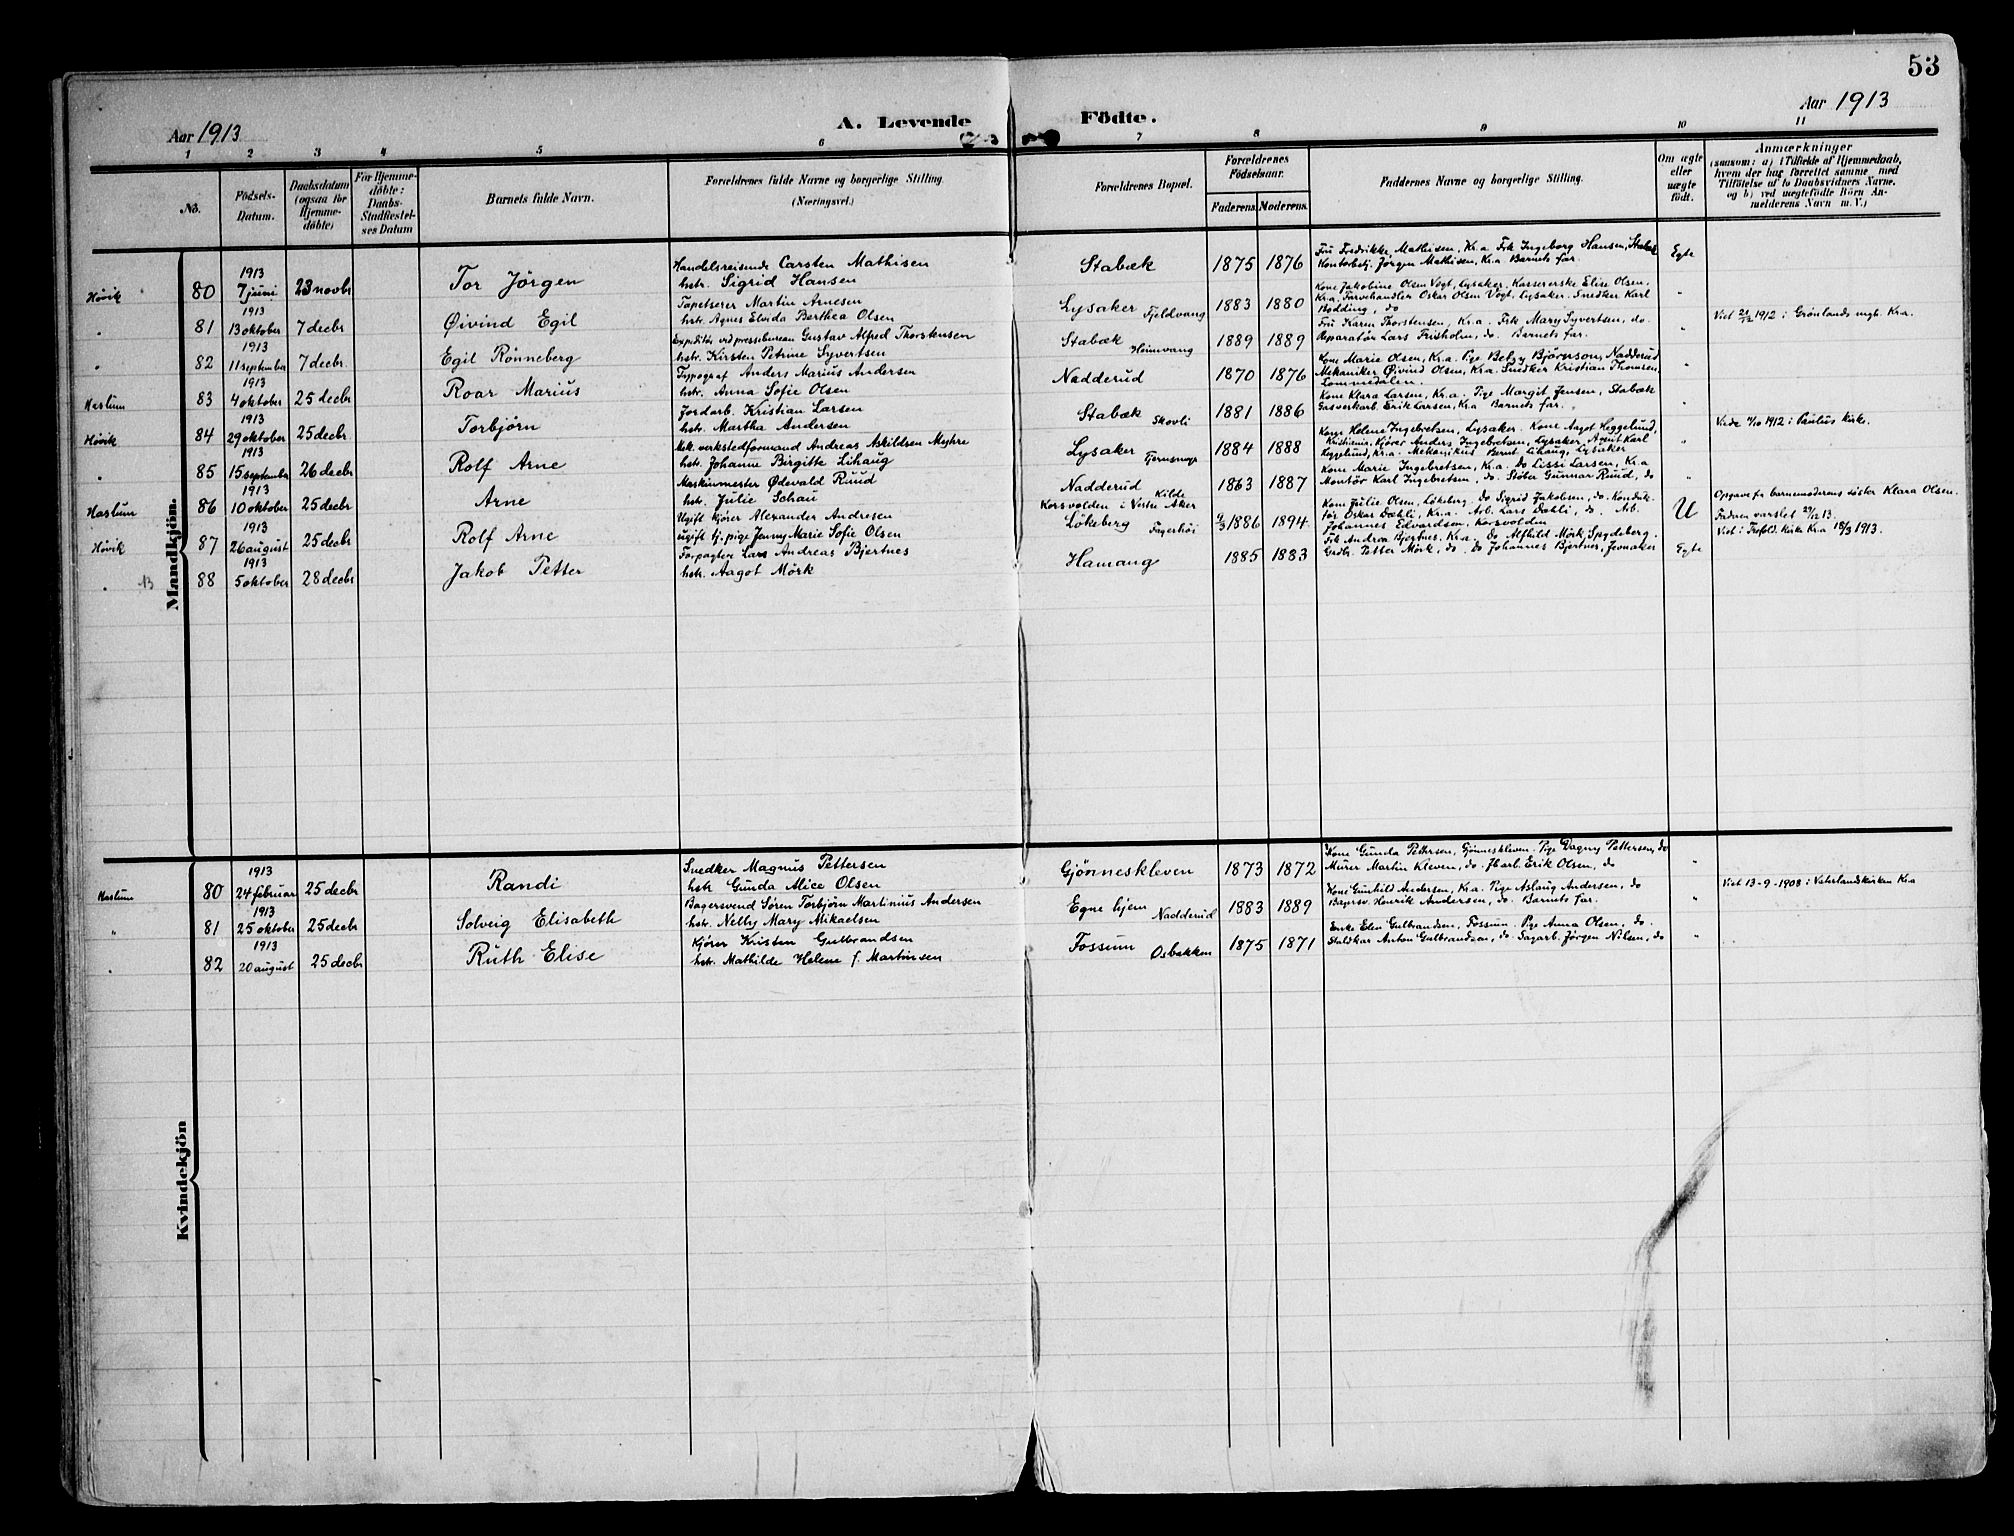 53
Aar 1913
A. Levende Födte.
Aar 1913
1 2 3 4 5 6 7 8 9 10 11
No.
Födsels-Datum.
Daabsdatum (ogsaa for Hjemmedøbte)
For Hjemmedøbte: Daabs-Stadfæstelses Datum
Barnets fulde Navn.
Forældrenes fulde Navne og borgerlige Stilling. (Næringsvei.)
Forældrenes Bopæl.
Forældrenes Födselsaar.
Faderens. Moderens.
Faddernes Navne og borgerlige Stilling.
Om ægte eller uægte födt.
Anmærkninger
(saasom: a) i Tilfælde af Hjemmedaab,
hvem der har forrettet samme, med
Tilföielse af to Daabsvidners Navne,
og b) ved uægtefödte Börn Anmelderens Navn m. V.)
Mandkjön.
Høvik 80 1913 7 juni 23 novbr Tor Jörgen
Handelsreisende Carsten Mathisen
hstr. Sigrid Hansen
Stabæk 1875 1876
Fru Fredrikke Mathisen, Kr.a. Frk Ingeborg Hansen, Stabæk
Kontorbetj. Jörgen Mathisen, Kr.a Barnets far.
Egte
" 81 1913 13 oktober 7 decbr Øivind Egil
Tapetserer Martin Arnesen
hstr. Agnes Elvida Berthea Olsen
Lysaker Fjeldvang 1883 1880
Kone Jakobine Olsen Vogt, Lysaker. Kassererske Elise Olsen,
Kr.a. Farvehandler Oskar Olsen Vogt, Lysaker. Snedker Karl
Bödding, do
"
Viet 21/12 1912 i Grönlands mgt. Kr.a.
" 82 1913 11 september 7 decbr. Egil Rönneberg
Expeditör ved pressebureau Gustav Alfred Thorstensen
hstr. Kirsten Petrine Syvertsen
Stabæk Heimvang 1889 1889
Fru Karen Thorstensen, Kr.a. Frk Mary Syvertsen, do.
Reparatør Lars Frisholm, do. Barnets far.
"
Haslum 83 1913 4 oktober 25 decbr Roar Marius
Typograf Anders Marius Andersen
hstr. Anna Sofie Olsen
Nadderud 1870 1876
Kone Marie Olsen, Kr.a. Pige Betzy Björnson, Nadderud
Mekaniker Øivind Olsen, Kr.a. Snedker Kristian Thomsen,
Lommedalen.
"
Høvik 84 1913 29 oktober 25 decbr. Torbjörn
Jordarb. Kristian Larsen
hstr. Martha Andersen
Stabæk Skovli 1881 1886
Kone Klara Larsen, Kr.a. Pige Margit Jensen, Stabæk
Gasverkarb. Erik Larsen, Kr.a Barnets far.
"
Viede 11/10 1912 i Paulus kirke.
" 85 1913 15 september 26 decbr Rolf Arne
Mek. verkstedformand Andreas Askildsen Myhre
hstr. Johanne Birgitte Lihaug
Lysaker Fjernsmyr 1884 1888
Kone Helene Ingebretsen, Lysaker. Kone Aagot Heggelund,
Kristiania, Kjörer Anders Ingebretsen, Lysaker, Agent Karl
Heggelund, Kr.a. Mekanikus Bernt Lihaug, Lysaker
"
Haslum 86 1913 10 oktober 25 decbr Arne
Maskinmester Ødevald Ruud
hstr. Julie Schau
Nadderud Kilde 1863 1887
Kone Marie Ingebretsen, Kr.a. do Lissi Larsen, Kr.a
Montör Karl Ingebretsen, do. Stöber Gunnar Ruud, do
"
Høvik 87 1913 26 august 25 decbr Rolf Arne
Ugift kjörer Alexander Andresen
ugift tj. pige Jenny Marie Sofie Olsen
Korsvolden i Vestre Aker
Lökeberg Fagerhöi 9/3 1886 1894
Kone Julie Olsen, Lökeberg. do Sigrid Jakobsen, do. Konduktör Oskar Dæhli, Kr.a. Arb. Lars Dæhli, do. Arb.
Johannes Edvardsen, Korsvolden
U
Opgave fra barnemoderens söster Klara Olsen.
Faderen varslet 29/12 13.
" 13 88 1913 5 oktober 28 decbr Jakob Petter
Forpagter Lars Andreas Bjertnes
hstr. Aagot Mörk
Hamang 1885 1883
Frk Andrea Bjertnes, Kr.a. do Alfhild Mörk, Spydeberg.
Grdbr. Petter Mörk, do. do Johannes Bjertnes, Jevnaker
Egte
Viet i Trefold. Kirke Kr.a 18/3 1913.
Kvindekjön
Haslum 80 1913 24 februar 25 decbr Randi
Snedker Magnus Pettersen
hstr Gunda Alice Olsen
Gjönneskleven 1873 1872
Kone Gunda Pettersen, Gjönneskleven. Pige Dagny Pettersen, do
Murer Martin Kleven, do Jbarb. Erik Olsen, do
"
" 81 1913 25 oktober 25 decbr Solveig Elisabeth
Bagersvend Sören Torbjörn Martinius Andersen
hstr. Nelly Mary Mikaelsen
Egne hjem Nadderud 1883 1889
Kone Gunhild Andersen, Kr.a. Pige Aslaug Andersen, do
Bagersv. Henrik Andersen, do. Barnets far.
"
Viet 13-9-1908 i Vaterlandkirken Kr.a
" 82 1913 20 august 25 decbr Ruth Elise
Kjörer Kristen Gulbrandsen
hstr. Mathilde Helene f. Martinsen
Fossum Osbakken 1875 1871
Enke Elen Gulbrandsen, Fossum. Pige Anna Olsen, do.
Staldkar Anton Gulbrandsen, do. Sagarb. Jörgen Nilsen, do
"